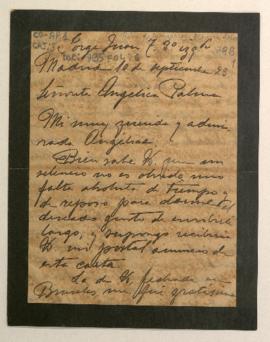 Jorge Juan 7. 2º izqª
Madrid 10 de septiembre 23
Señorita Angélica Palma
Mi muy querida y admi-
rada Angélica:
Bien sabe V. que mi
silencio no es olvido sino
falta absoluta de tiempo y
de reposo para darme el
deseado gusto de escribirle
largo, y supongo recibiría
V. mi postal anuncio de
esta carta.
La de V. fechada en
Bruselas me fué gratísima